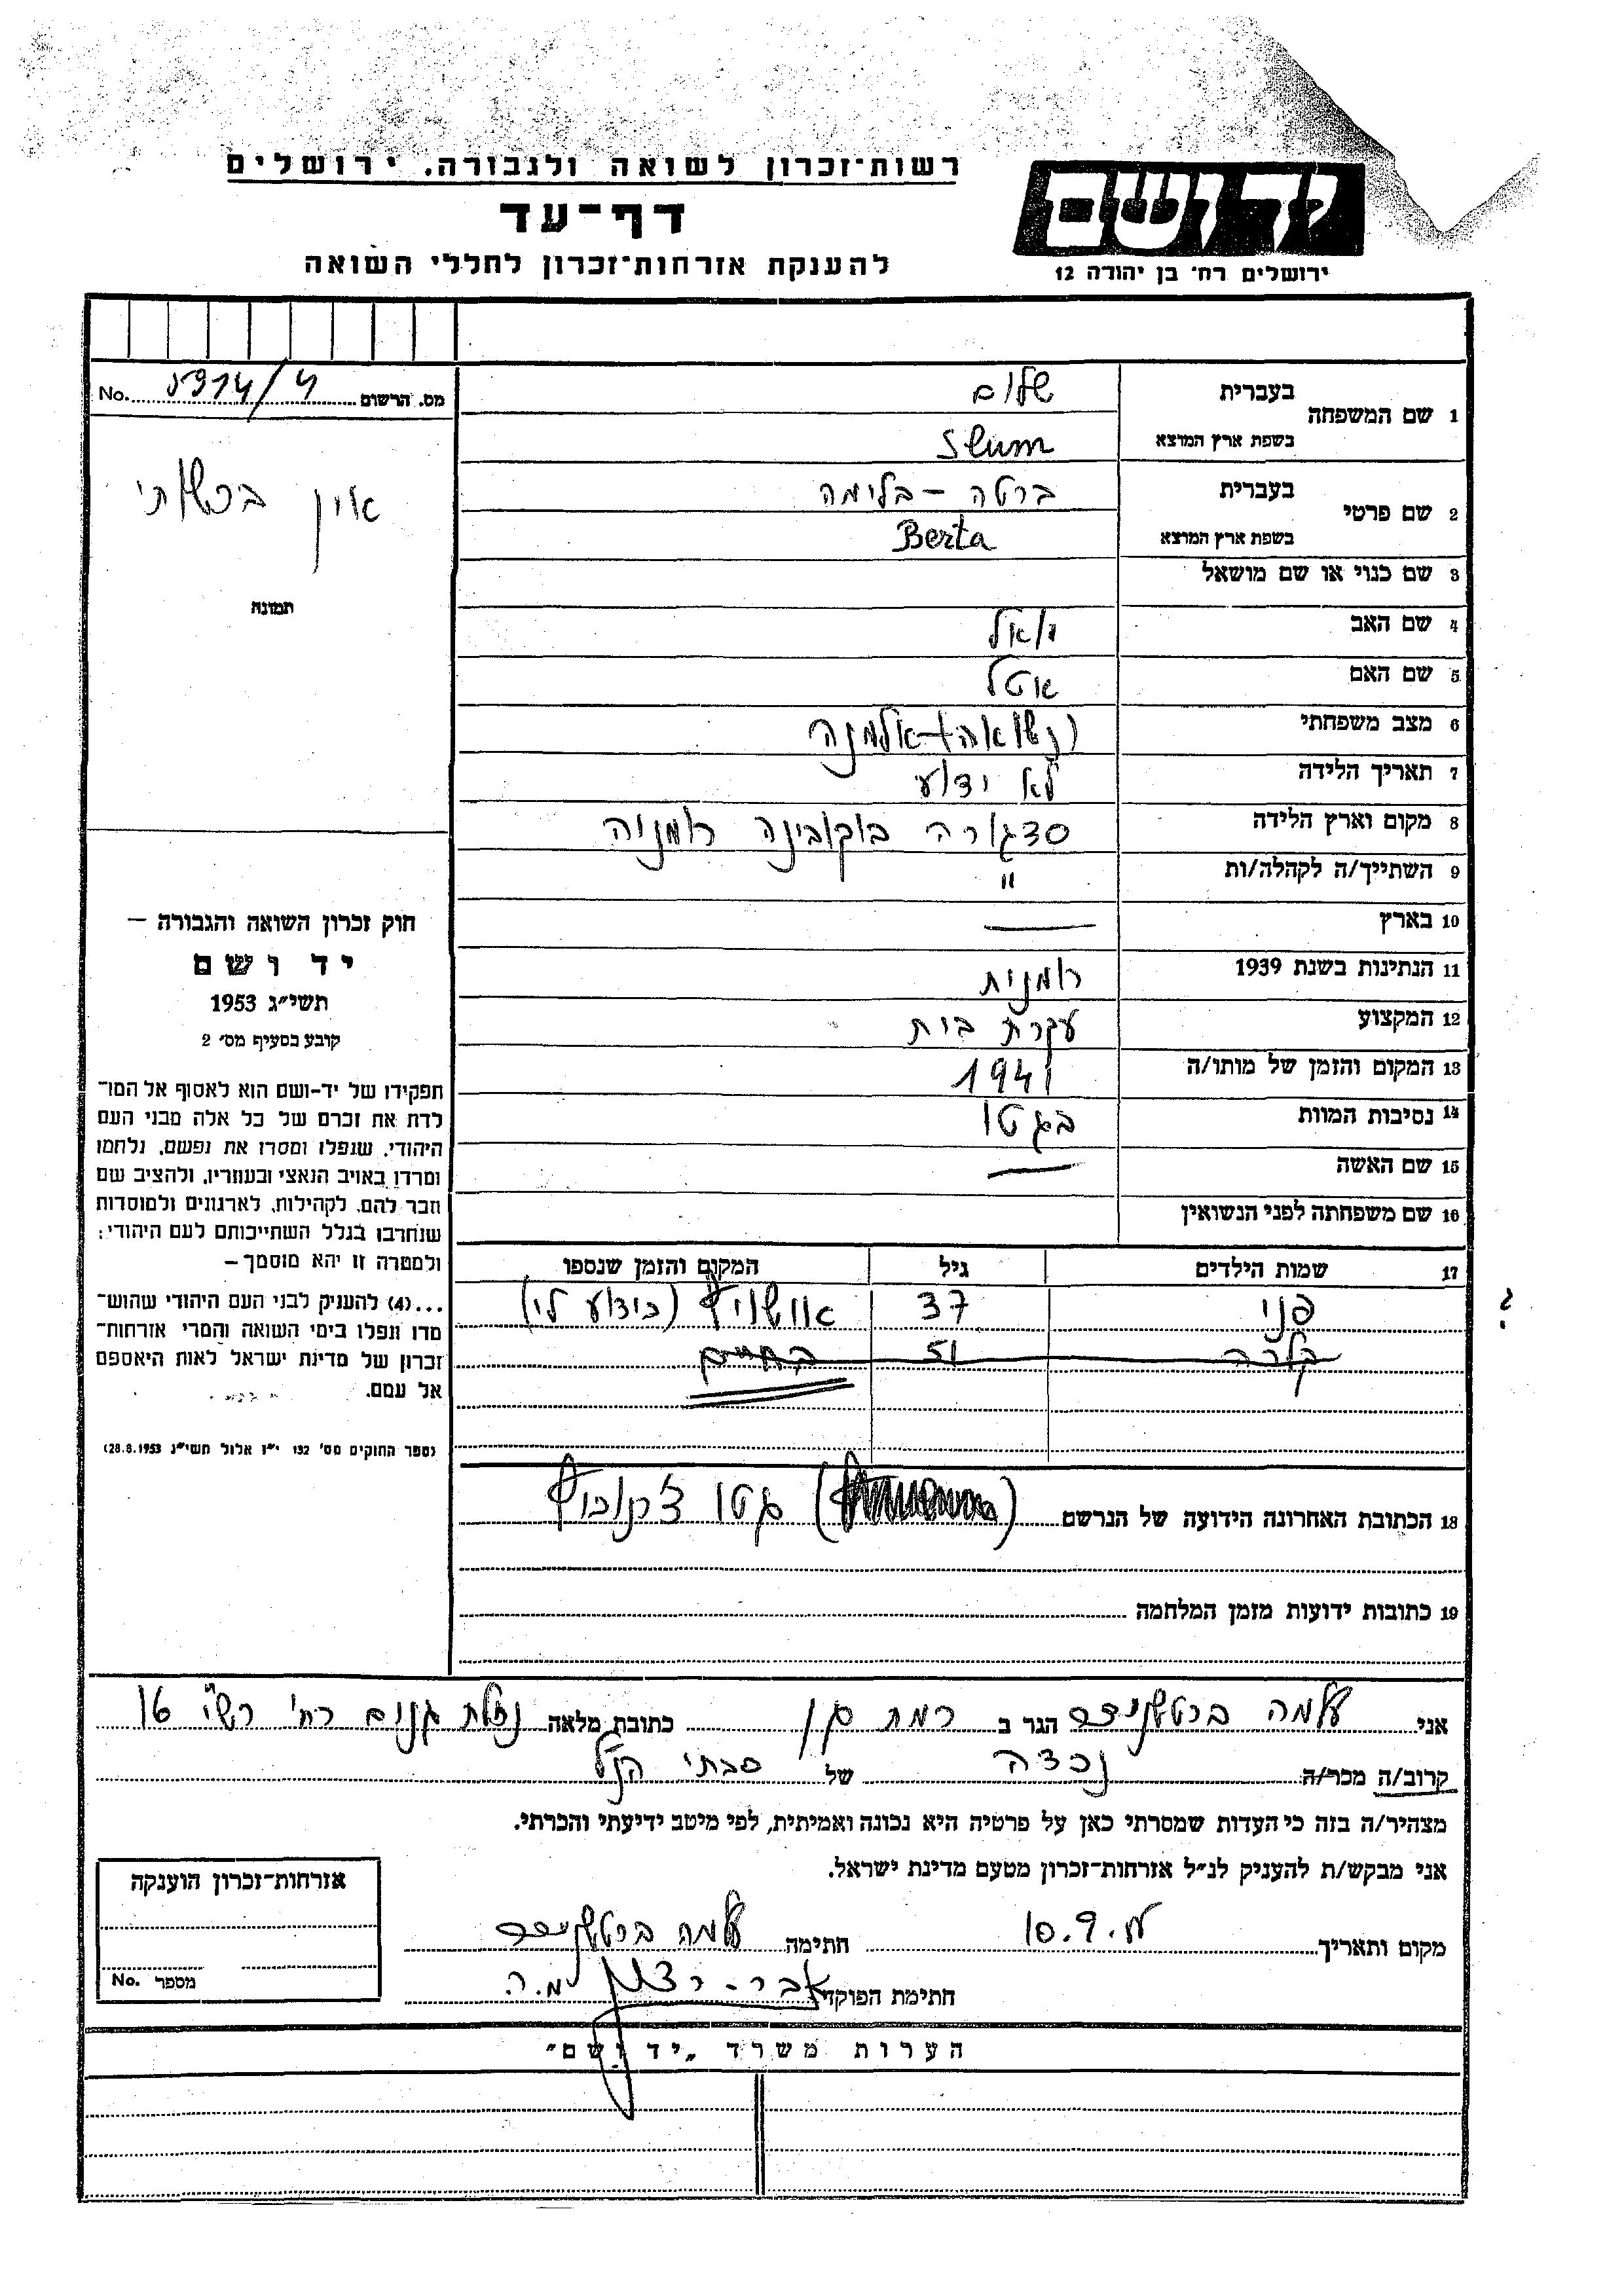 רשות־זכרון לשואה ולגבורה. ירושלים
דף־עד
להענקת אזרחות־זכרון לחללי השואה
יד ושם
ירושלים רח׳ בן יהודה 12
מס. הרשום 5914/4 No.
אין ברשותי
תמונה
1 שם המשפחה בעברית שלום
בשפת ארץ המוצא Slum
2 שם פרטי בעברית ברטה - בלימה
בשפת ארץ המוצא Berta
3 שם כנוי או שם מושאל
4 שם האב יואל
5 שם האם אטל
6 מצב משפחתי (נשואה) אלמנה
7 תאריך הלידה לא ידוע
8 מקום וארץ הלידה סדגורה בוקובינה רומניה
9 השתייך/ה לקהלה/ות "
10 בארץ —
11 הנתינות בשנת 1939 רומנית
12 המקצוע עקרת בית
13 המקום והזמן של מותו/ה 1941
14 נסיבות המוות בגטו
15 שם האשה —
16 שם משפחתה לפני הנשואין
17 שמות הילדים גיל המקום והזמן שנספו
פני 37 אושויץ (כידוע לי) ?
קלרה 51 בחיים
18 הכתובת האחרונה הידועה של הנרשם גטו צ׳רנוביץ
19 כתובות ידועות מזמן המלחמה
חוק זכרון השואה והגבורה –
יד ושם
תשי״ג 1953
קובע בסעיף מס׳ 2
תפקידו של יד-ושם הוא לאסוף אל המו־
לדת את זכרם של כל אלה מבני העם
היהודי, שנפלו ומסרו את נפשם, נלחמו
ומרדו באויב הנאצי ובעוזריו, ולהציב שם
וזכר להם, לקהילות, לארגונים ולמוסדות
שנחרבו בגלל השתייכותם לעם היהודי;
ולמטרה זו יהא מוסמך –
...(4) להעניק לבני העם היהודי שהוש־
מדו ונפלו בימי השואה והמרי אזרחות־
זכרון של מדינת ישראל לאות היאספם
אל עמם.
(ספר החוקים מס׳ 132 י״ז אלול תשי״ג 28.8.1953)
אני עלמה הגר ב רמת גן כתובת מלאה נחלת גנים רח׳ רש״י 16
קרוב/ה מכר/ה נכדה של סבתי הנ״ל
מצהיר/ה בזה כי העדות שמסרתי כאן על פרטיה היא נכונה ואמיתית, לפי מיטב ידיעתי והכרתי.
אני מבקש/ת להעניק לנ״ל אזרחות־זכרון מטעם מדינת ישראל.
מקום ותאריך 10.9 חתימה עלמה
חתימת הפוקד
אזרחות־זכרון הוענקה
מספר No.
הערות משרד „יד ושם״